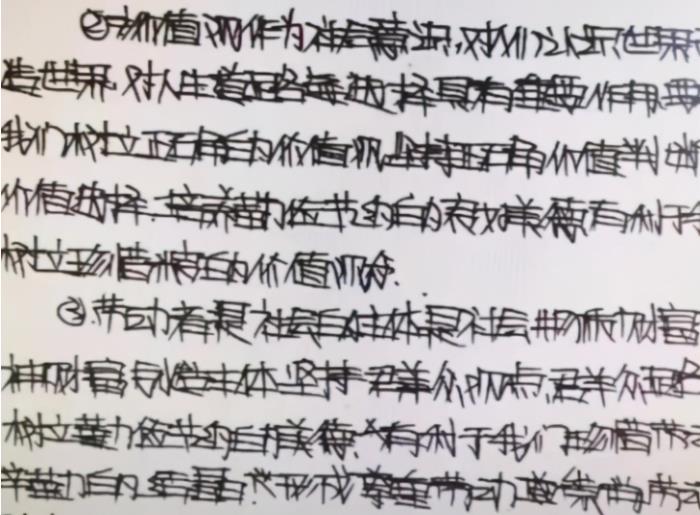 ②价值观作为社会意识,对人们认识世界
造世界,对人生道路的选择具有重要作用,要
我们树立正确的价值观,坚持正确价值判断
价值选择.培养勤俭节约的美德有利于
树立珍惜粮食的价值观念.
③.劳动者是社会的主体是社会物质财富
神财富创造主体.坚持群众观点,群众路
树立勤俭节约的美德,有利于我们珍惜劳动
辛勤的结晶.形成尊重劳动